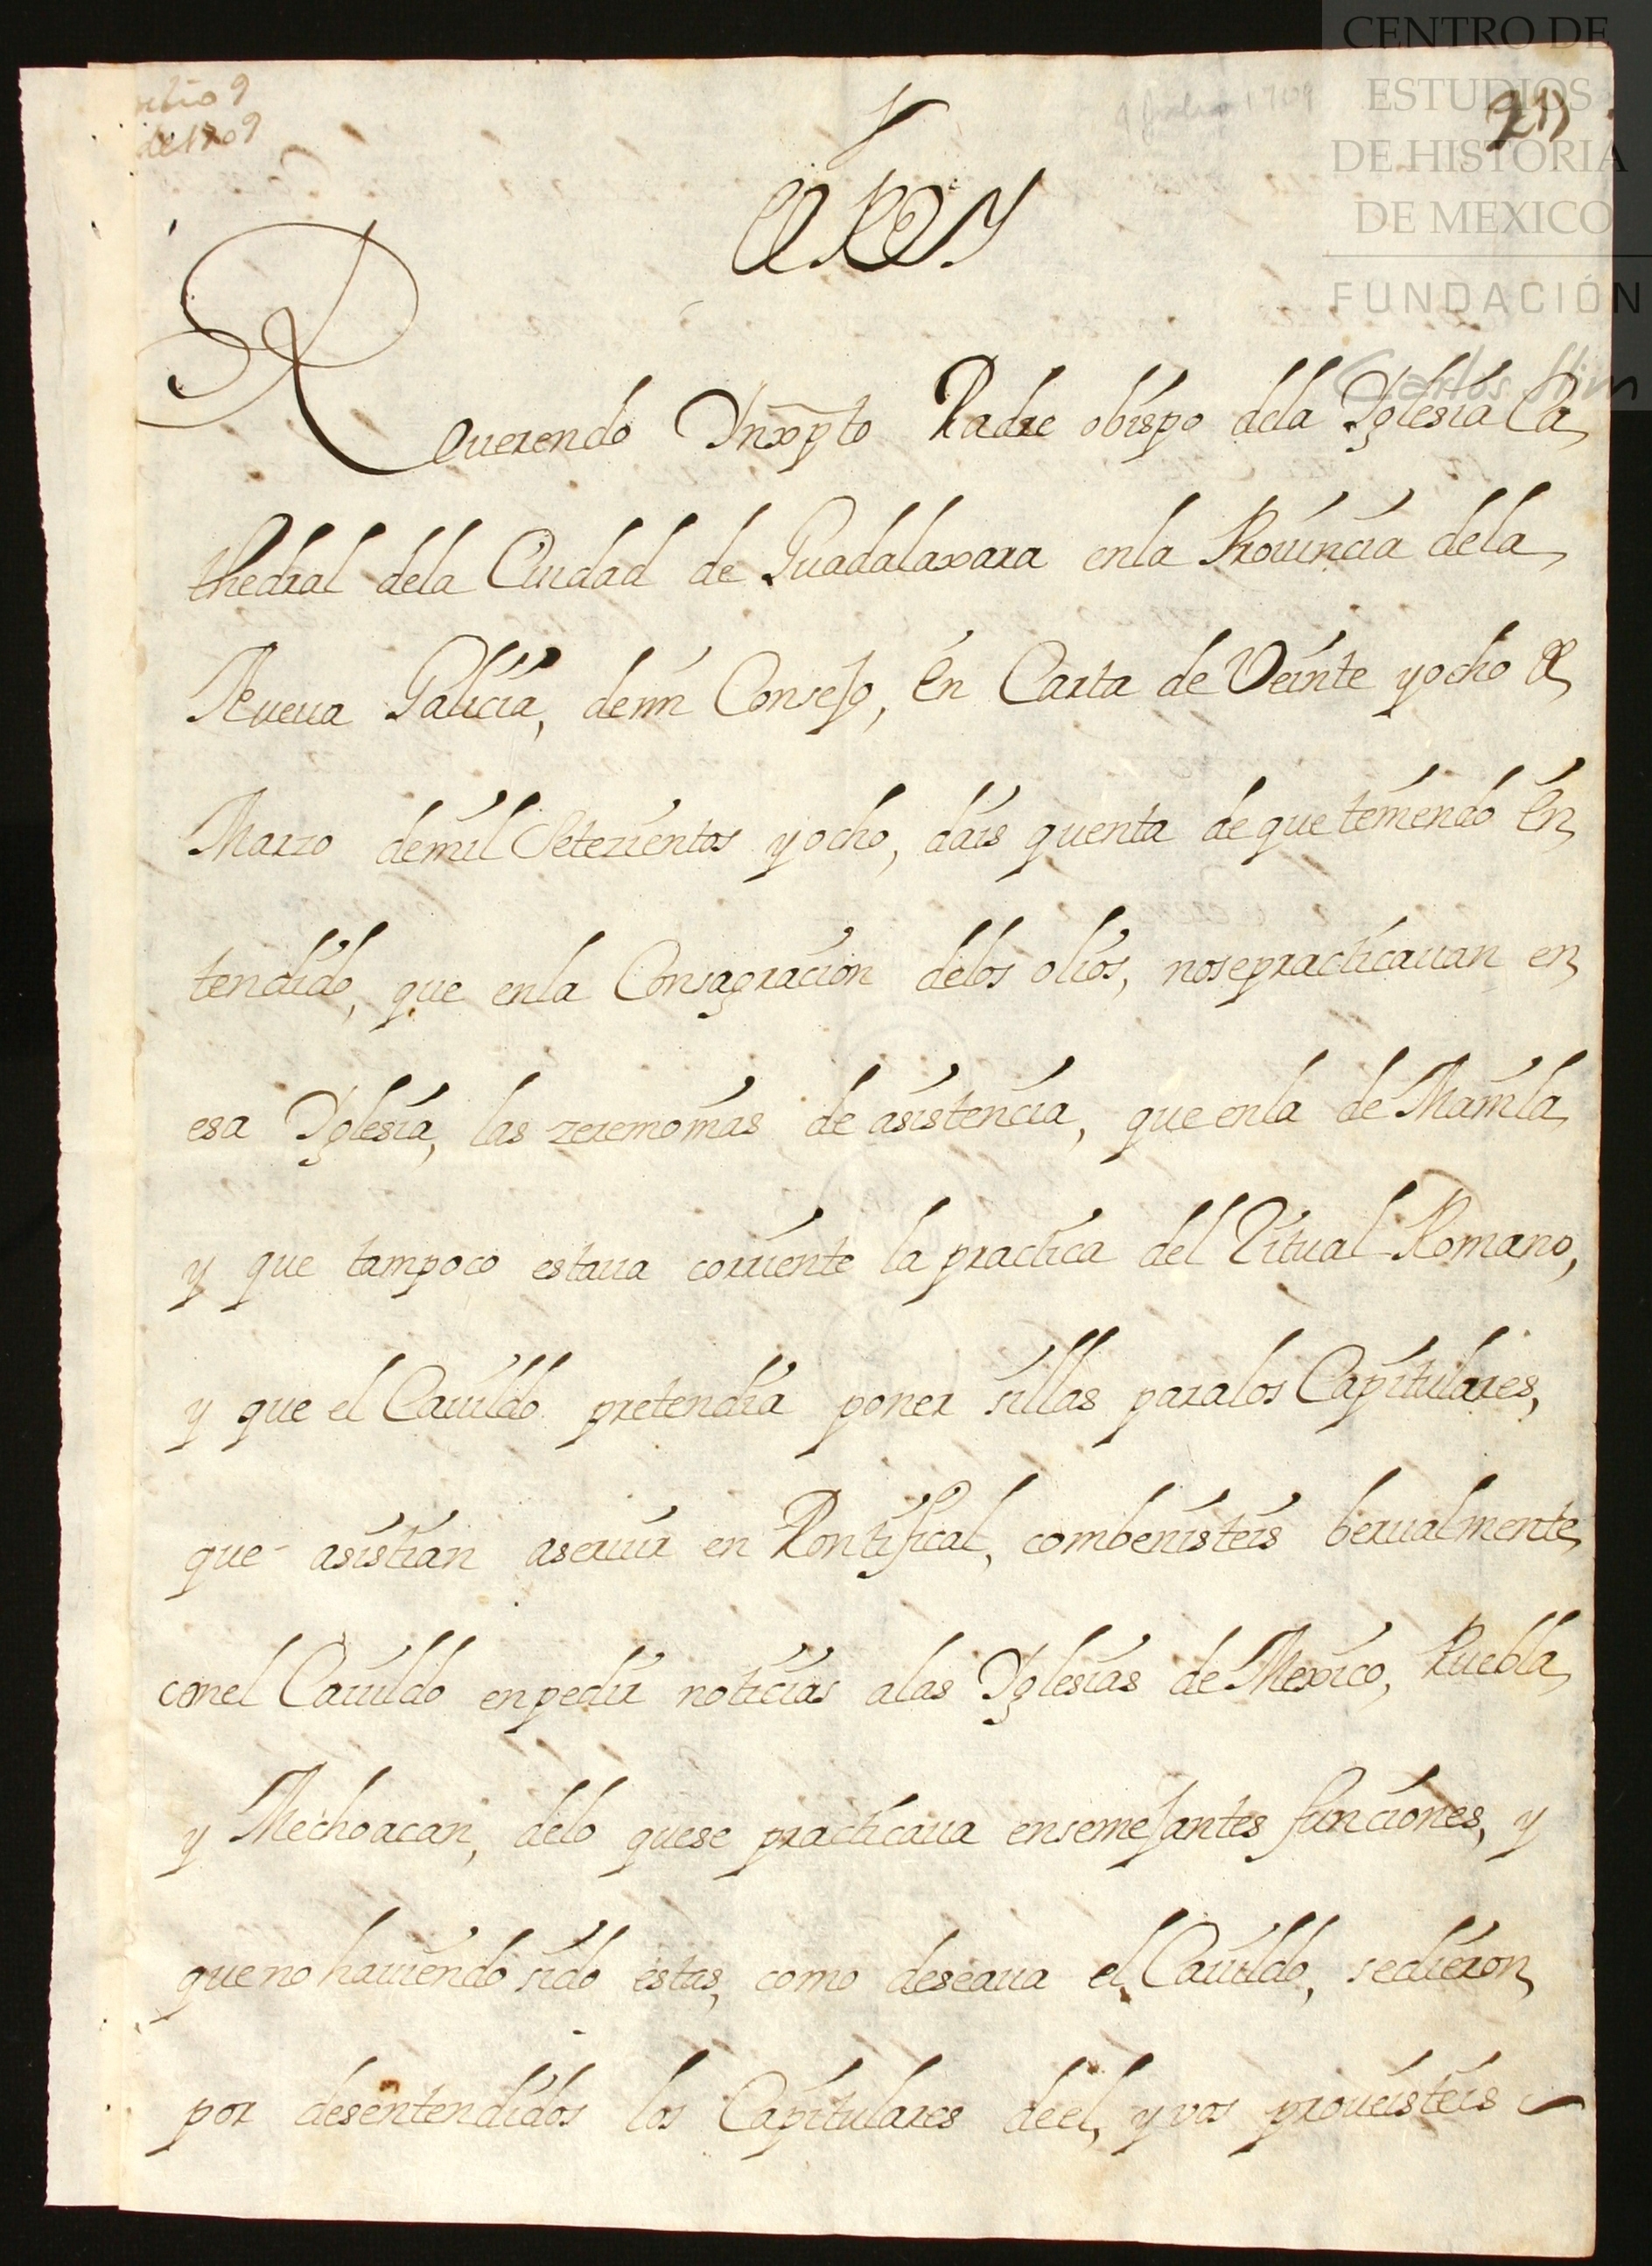 CENTRO DE
ESTUDIOS
DE HISTORIA
DE MEXICO
FUNDACIÓN
Carlos Slim
de 1709
9 Julio 1709
El Rey
Reuerendo Inxpto Padre obispo dela Iglesia Ca
thedral dela Ciudad de Guadalaxara enla Prouincia dela
Nueua Galicia, demi Consejo, En Carta de Veinte yocho de
Marzo demil Setezientos yocho, dais quenta de que teniendo En
tendido, que enla Consagracion delos olios, nosepracticauan en
esa Iglesia, las zeremonias de asistencia, que enla de Manila
y que tampoco estaua corriente la practica del Ritual Romano,
y que el Cauildo pretendia poner sillas paralos Capitulares,
que asistian aseruir en Pontifical, combenisteis berualmente
conel Cauildo enpedir noticias alas Iglesias de Mexico, Puebla
y Mechoacan, delo quese practicaua ensemejantes funciones, y
queno hauiendo sido estas, como deseaua el Cauildo, sedieron
por desentendidos los Capitulares deel, y vos proueisteis